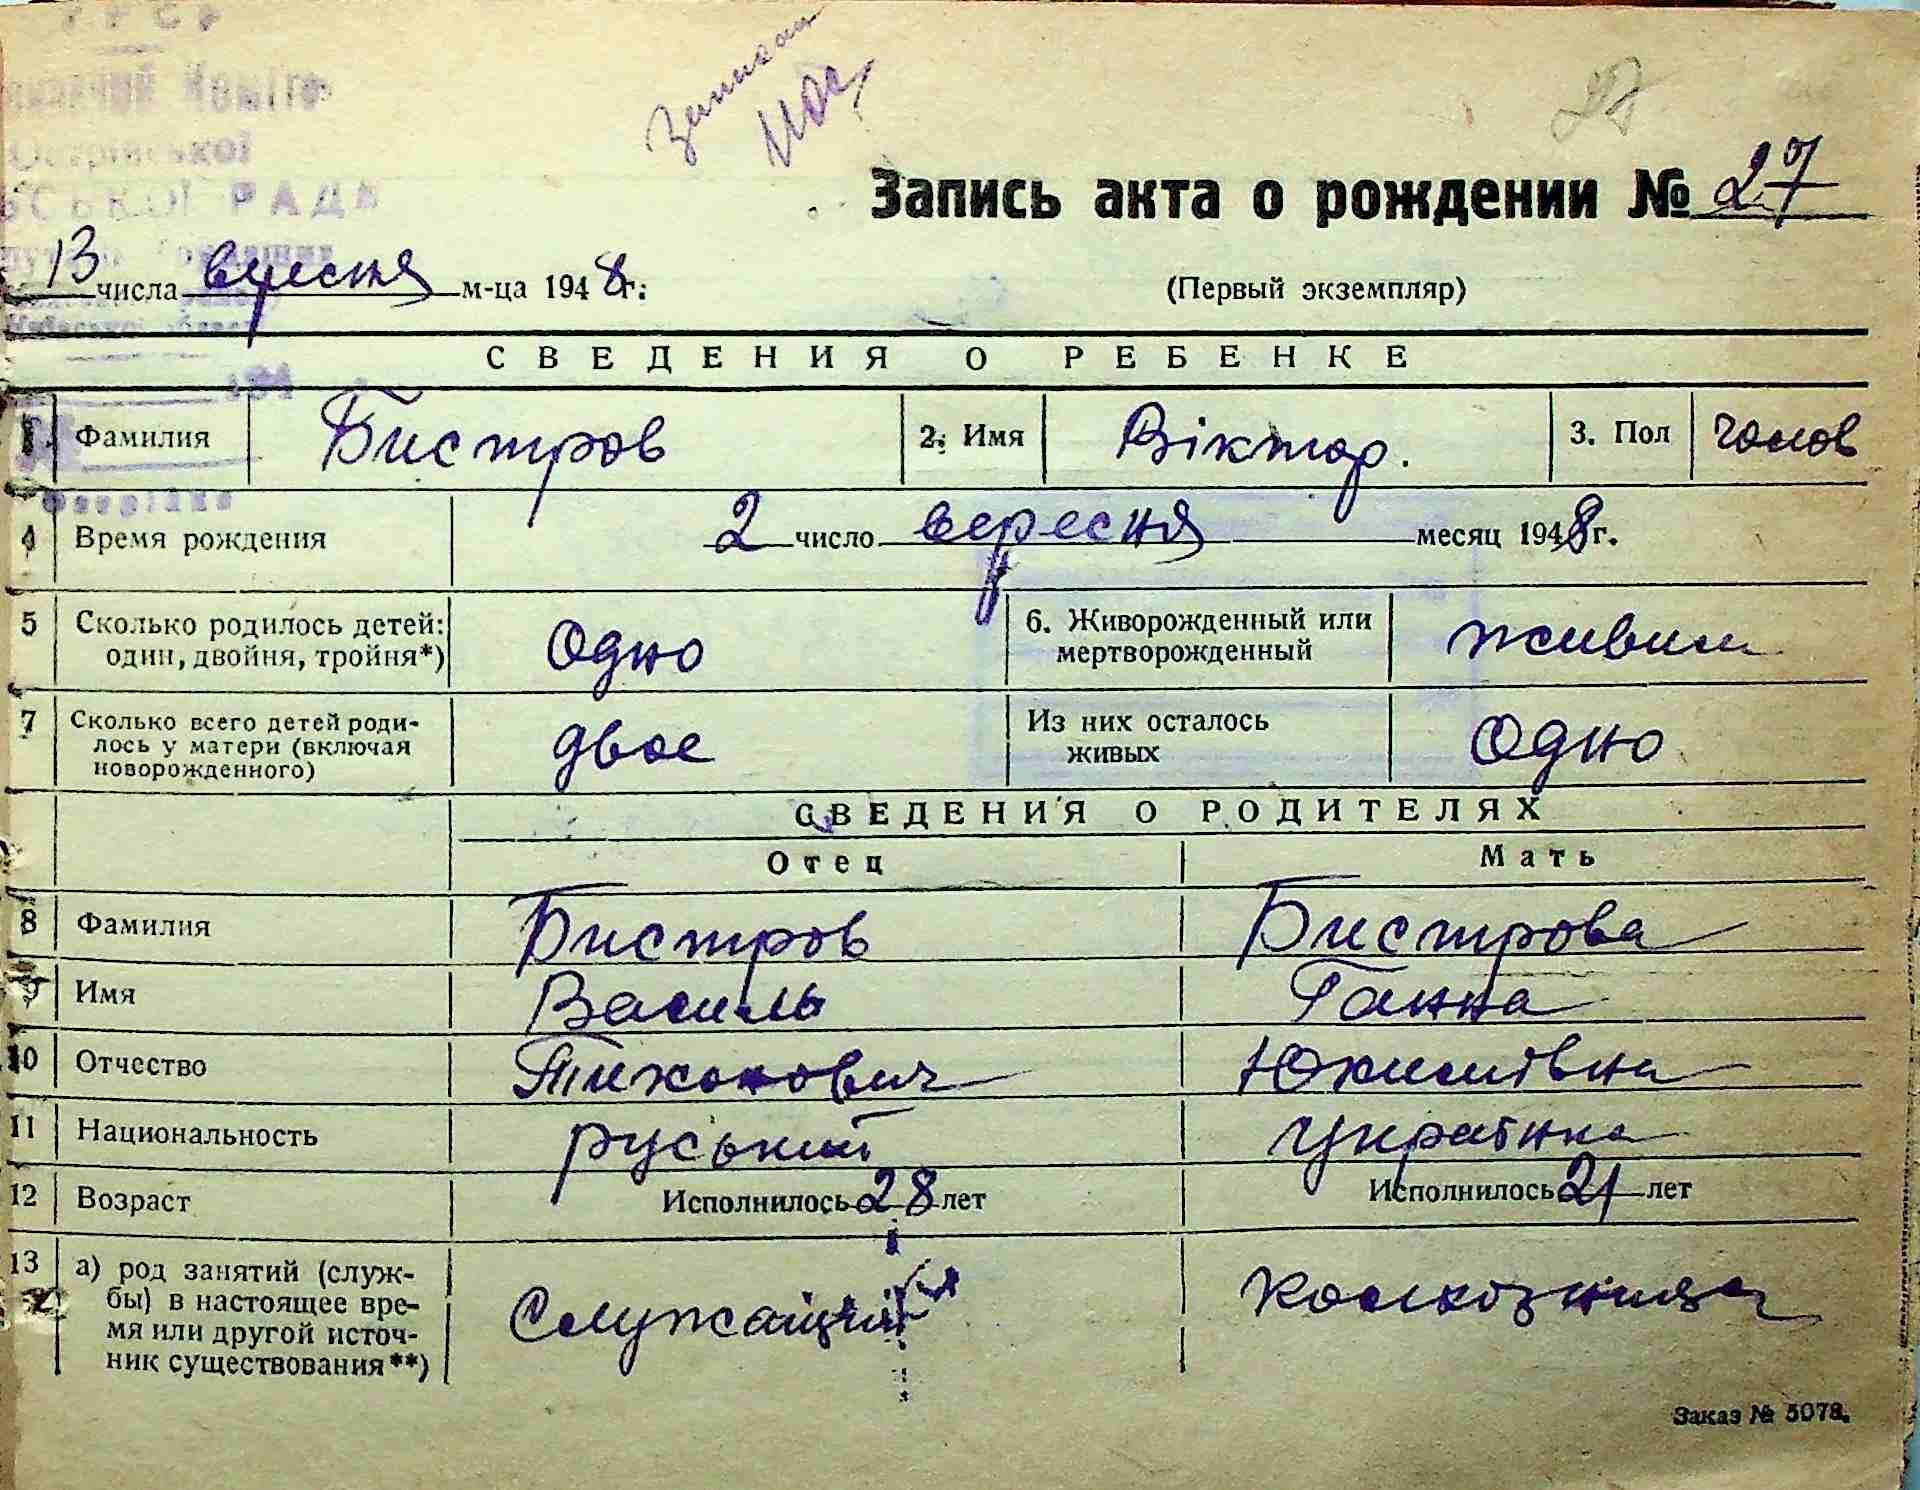 27
Запись акта о рождении № 27
13 числа вересня м-ца 1948г.
(Первый экземпляр)
СВЕДЕНИЯ О РЕБЕНКЕ
1. Фамилия Бистров 2. Имя Віктор. 3. Пол чолов
4 Время рождения 2 число вересня месяц 1948г.
5 Сколько родилось детей: один, двойня, тройня*) Одно 6. Живорожденный или мертворожденный живим
7 Сколько всего детей роди-
лось у матери (включая
новорожденного) двое Из них осталось живых Одно
СВЕДЕНИЯ О РОДИТЕЛЯХ
Отец Мать
8 Фамилия Бистров Бистрова
9 Имя Василь Ганна
10 Отчество Тихонович Юхимівна
11 Национальность руський українка
12 Возраст Исполнилось 28 лет Исполнилось 21 лет
13 а) род занятий (служ-
бы) в настоящее вре-
мя или другой источ-
ник существования**) Служащий колхозниця
Заказ № 5078.